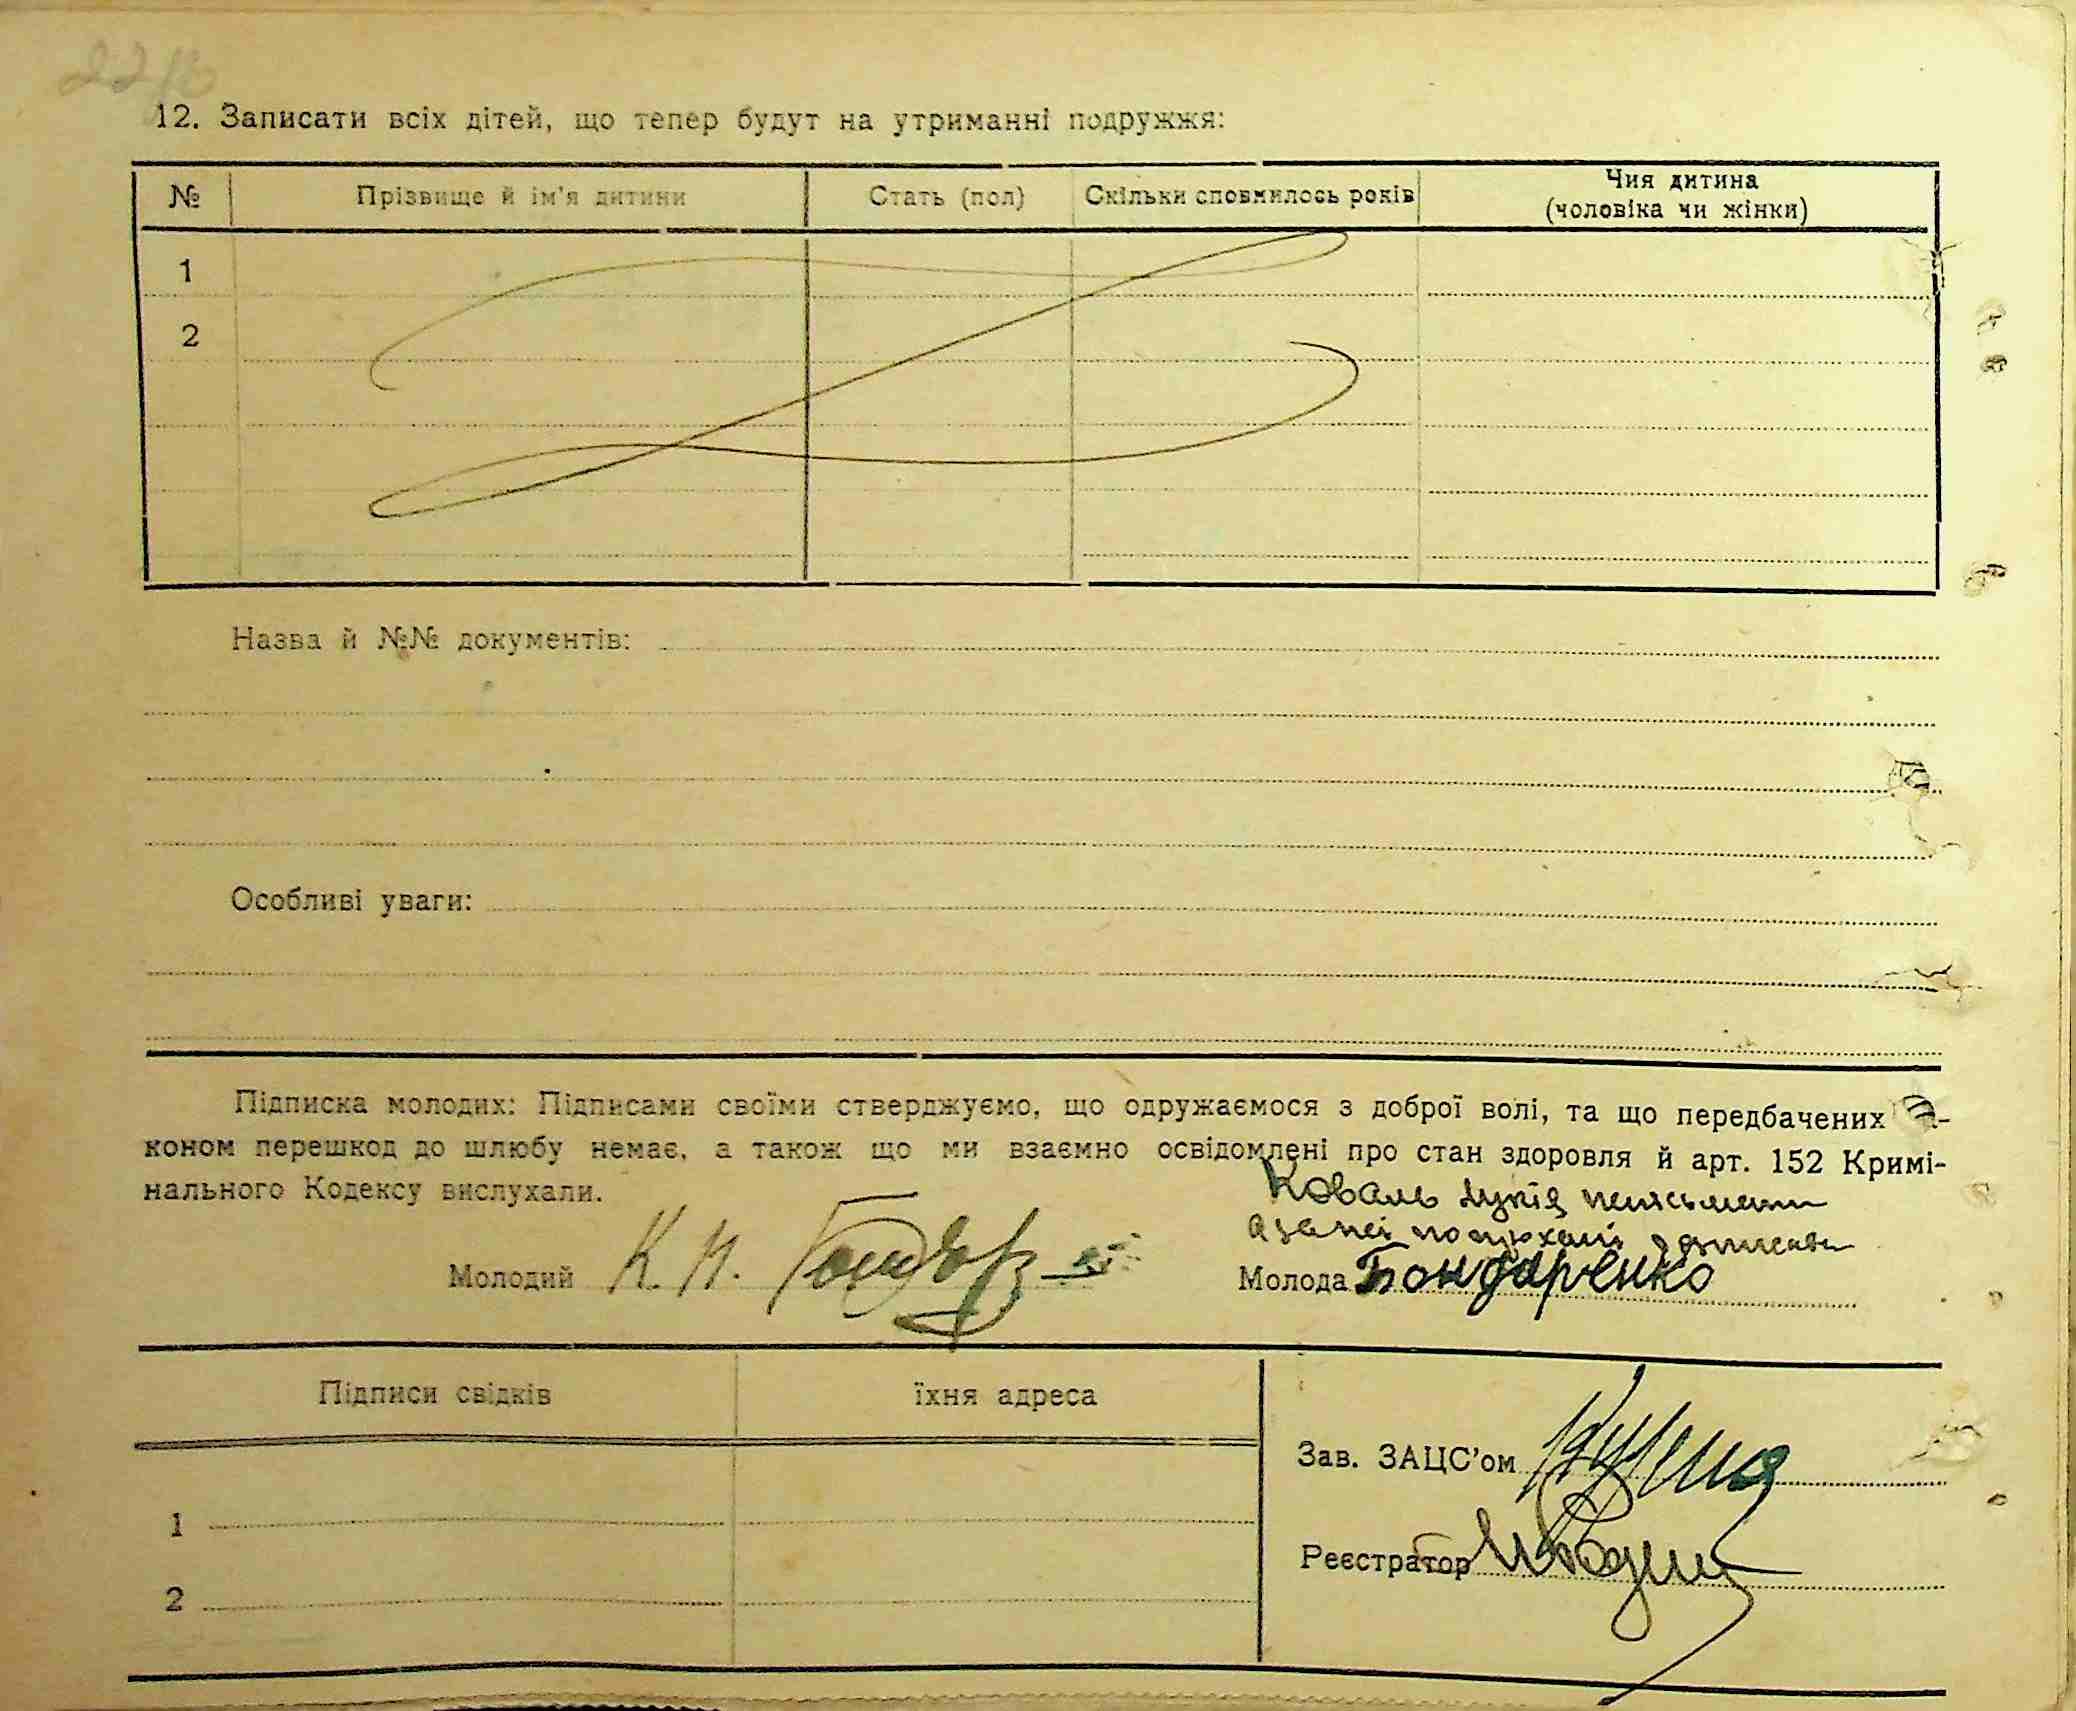 12. Записати всіх дітей, що тепер будут на утриманні подружжя:
№ Прізвище й ім'я дитини Стать (пол) Скільки сповнилось років Чия дитина (чоловіка чи жінки)
1
2
Назва й №№ документів:
Особливі уваги:
Підписка молодих: Підписами своїми стверджуємо, що одружаємося з доброї волі, та що передбачених за-
коном перешкод до шлюбу немає, а також що ми взаємно освідомлені про стан здоровля й арт. 152 Кримі-
нального Кодексу вислухали.
Коваль
Молодий К. И. Молода Бондаренко
Підписи свідків їхня адреса
Зав. ЗАЦС'ом
1
Реєстратор
2